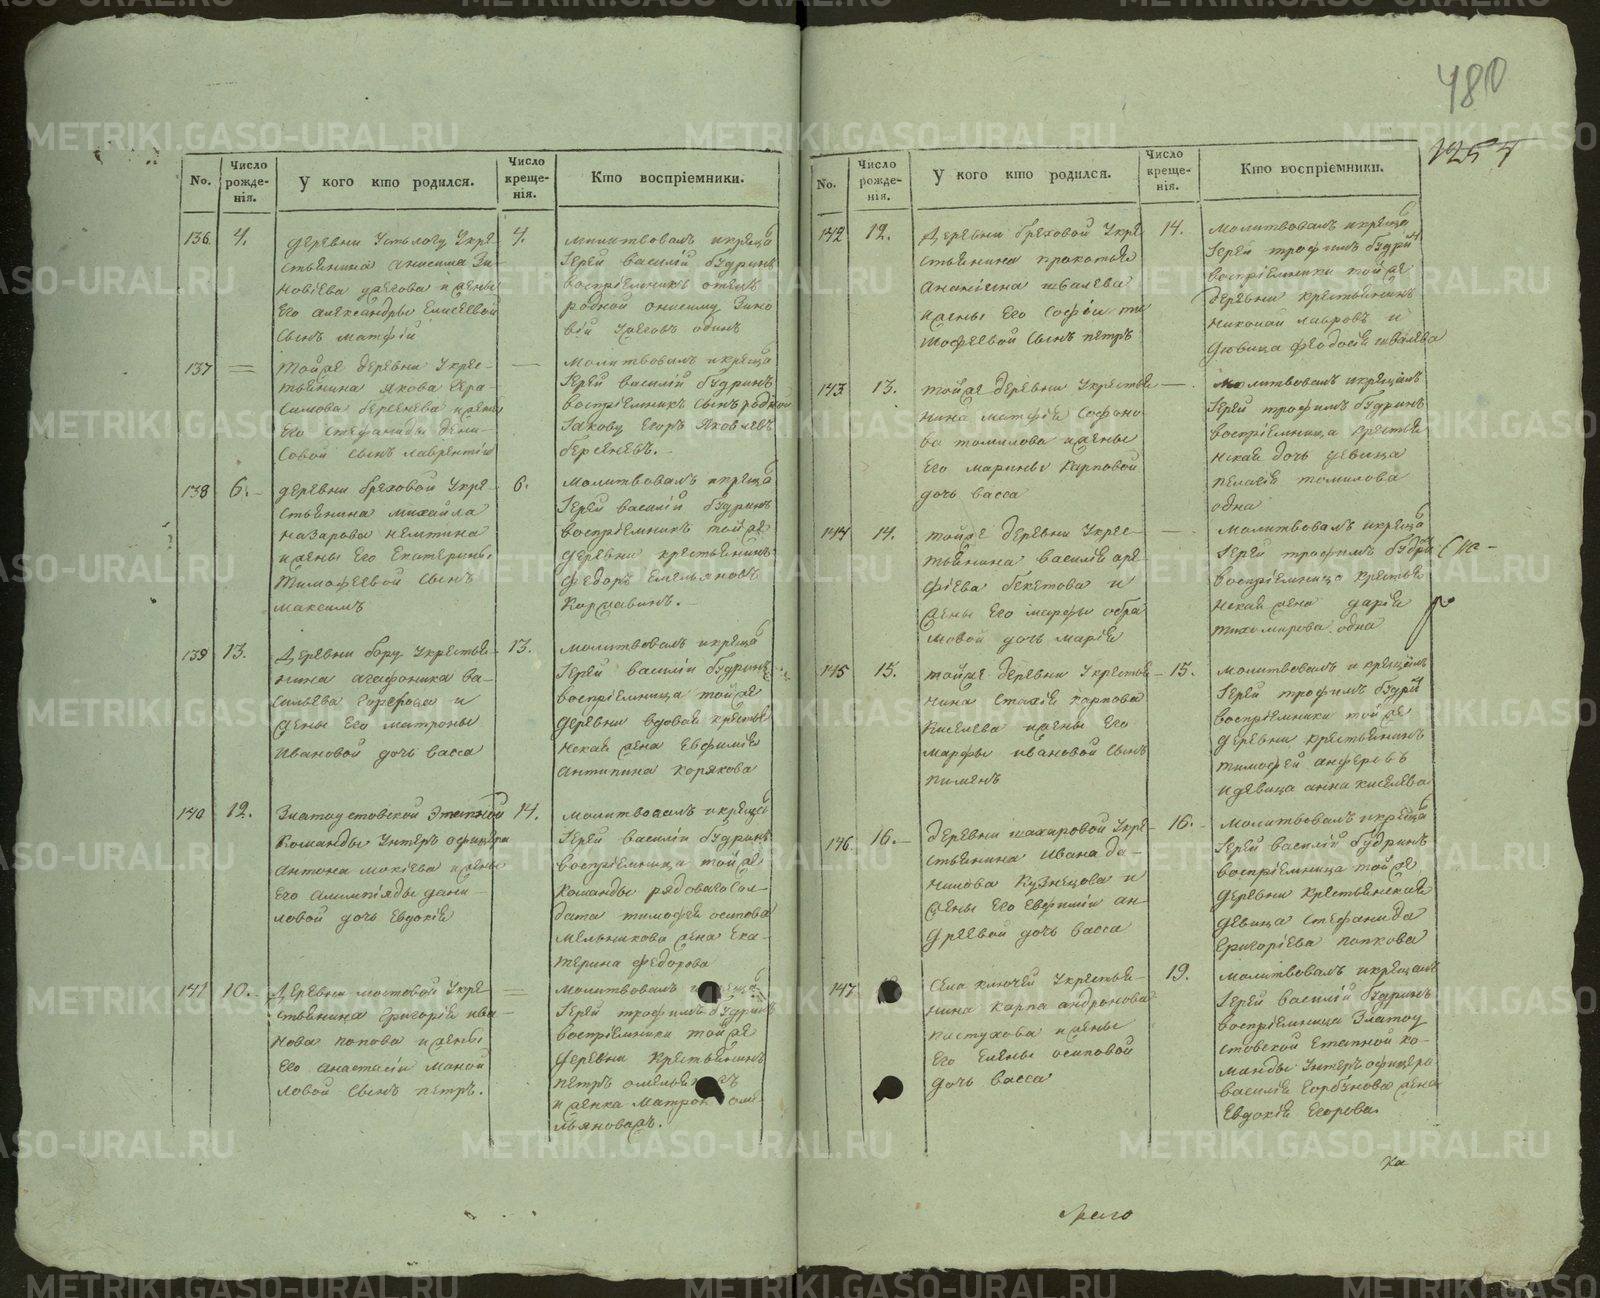 480
1257
No.
Число рожде-нія.
У кого кто родился.
Число креще-нія.
Кто воспріемники.
136.
4.
деревни Устьлогу Укре-
стьянина Анисима Зи-
новіева
и жены
его александры Елисеевой
сынъ матфій
4.
молитвовалъ и креща
Іерей василій будринъ
воспріемникъ отецъ
родной онисиму Зино
вій одинъ
137
тойже деревни Укрес-
тьянина якова Гера-
симова берсенева и жены
его стефаниды дени-
совой сынъ лаврентій
молитвовалъ и креща
Іерей василій будринъ
воспріемникъ сынъ родной
Іакову Егоръ яковлевъ
берсеневъ.
138
6.
деревни бреховой Укре-
стьянина михайла
назарова немтина
и жены его Екатерины
тимофеевой сынъ
максимъ
6.
молитвовалъ и креща
Іерей василій будринъ
воспріемникъ тойже
деревни крестьянинъ
федоръ Емельяновъ
Кормавинъ.
139
13.
деревни бору Укрестья-
нина агафоника ва-
сильева и
жены его матроны
ивановой дочь васса
13.
молитвовалъ и креща
Іерей василій будринъ
воспріемница тойже
деревни вдовая крестья
нская жена Евфимія
антипина корякова
140
12.
Златоустовской этапной
команды Унтеръ офицера
антона мокіева и жены
его алимпіяды дани-
ловой дочь Евдокія
14.
молитвовалъ и креща
Іерей василій будринъ
воспріемница тойже
команды рядоваго сол-
дата тимофея осипова
мельникова жена ека-
терина федорова
141
10.
деревни мостовой Укре
стьянина григорія ива-
нова попова и жены
его анастасіи маной
ловой сынъ петръ.
молитвовалъ и креща
Іерей трофимъ будринъ
воспріемники тойже
деревни крестьянинъ
петръ
и женка матрона оме-
льянова.
No.
Число рожде-нія.
У кого кто родился.
Число креще-нія.
Кто воспріемники.
142
12.
деревни бреховой Укре
стьянина прокопья
ананіина швалева
и жены его софіи ти
мофеевой сынъ петръ
14.
молитвовалъ и креща
Іерей трофимъ будрин
воспріемники тойже
деревни крестьянинъ
николай лавровъ и
девица феодосія швалева
143
13.
тойже деревни Укрестья
нина матфія софоно
ва томилова и жены
его марины карповой
дочь васса
молитвовалъ и крещалъ
Іерей трофимъ будринъ
воспріемница крестья
нская дочь девица
пелагія томилова
одна
144
14.
тойже деревни Укрес-
тьянина василія аре
фіева бекетова и
жены его марфы абра
мовой дочь марія
молитвовалъ и креща
Іерей трофимъ будри
воспріемница крестья
нская жена дарія
тихомирова одна
145
15.
тойже деревни Укрестья-
нина стахія карпова
киселева и жены его
марфы ивановой сынъ
пименъ
15.
молитвовалъ и крещалъ
Іерей трофимъ будри
воспріемники тойже
деревни крестьянинъ
тимофей анферовъ
и девица анна киселева
146
16.
деревни шахировой Укре-
стьянина ивана да-
нилова Кузнецова и
жены его евфиміи ан-
дреевой дочь васса
16.
молитвовалъ и креща
Іерей василій будринъ
воспріемница тойже
деревни крестьянская
девица стефанида
григоріева попкова
147
села ключей Укрестья-
нина карпа андронова
пастухова и жены
его Елены осиповой
дочь васса
19.
молитвовалъ и крещалъ
Іерей василій будринъ
воспріемница Златоу
стовской етапной ко-
манды Унтеръ офицера
василія горбунова жена
Евдокія Егорова.
METRIKI.GASO-URAL.RU